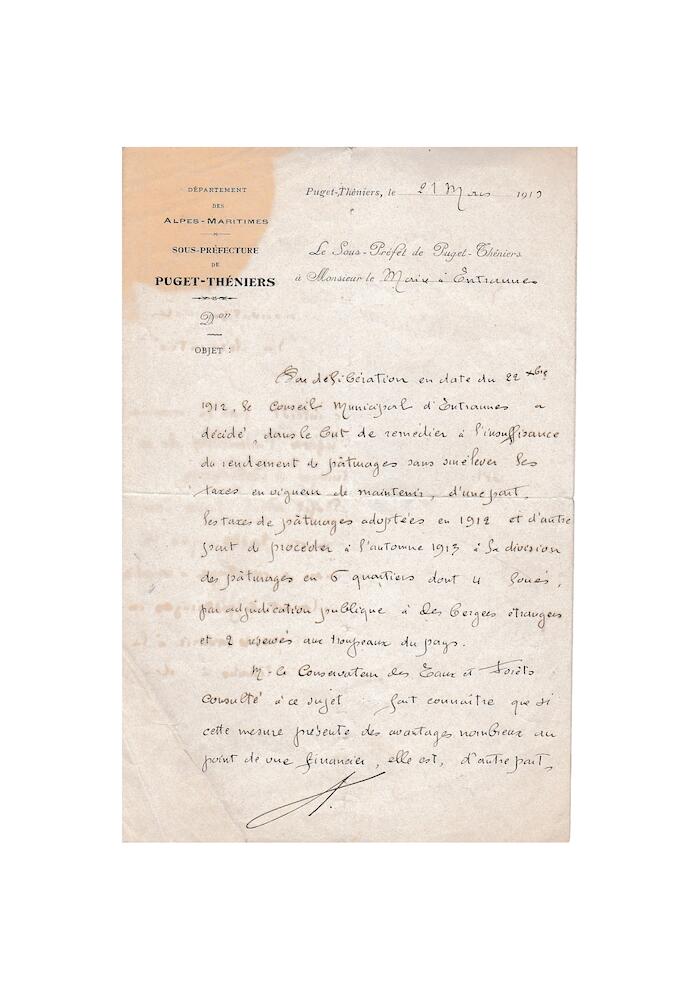 DÉPARTEMENT
DES
ALPES-MARITIMES
SOUS-PRÉFECTURE
DE
PUGET-THÉNIERS
Don
OBJET :
Puget-Théniers, le 21 Mars 1913
Le Sous-Préfet de Puget-Théniers
à Monsieur le Maire à Entraunes
Par delibération en date du 22 xbre
1912, le Conseil Municipal d'Entraunes a
décidé, dans le but de remédier à l'insuffisance
du rendement de pâturages sans surélever les
taxes en vigueur de maintenir, d'une part,
les taxes de pâturages adoptées en 1912 et d'autre
part de procéder à l'automne 1913 à la division
des pâturages en 6 quartiers dont 4 loués,
par adjudication publique à des bergers étrangers
et 2 reservés aux troupeaux du pays.
M. le Conservateur des Eaux et Forêts
consulté à ce sujet fait connaître que si
cette mesure présente des avantages nombreux au
point de vue financier, elle est, d'autre part,